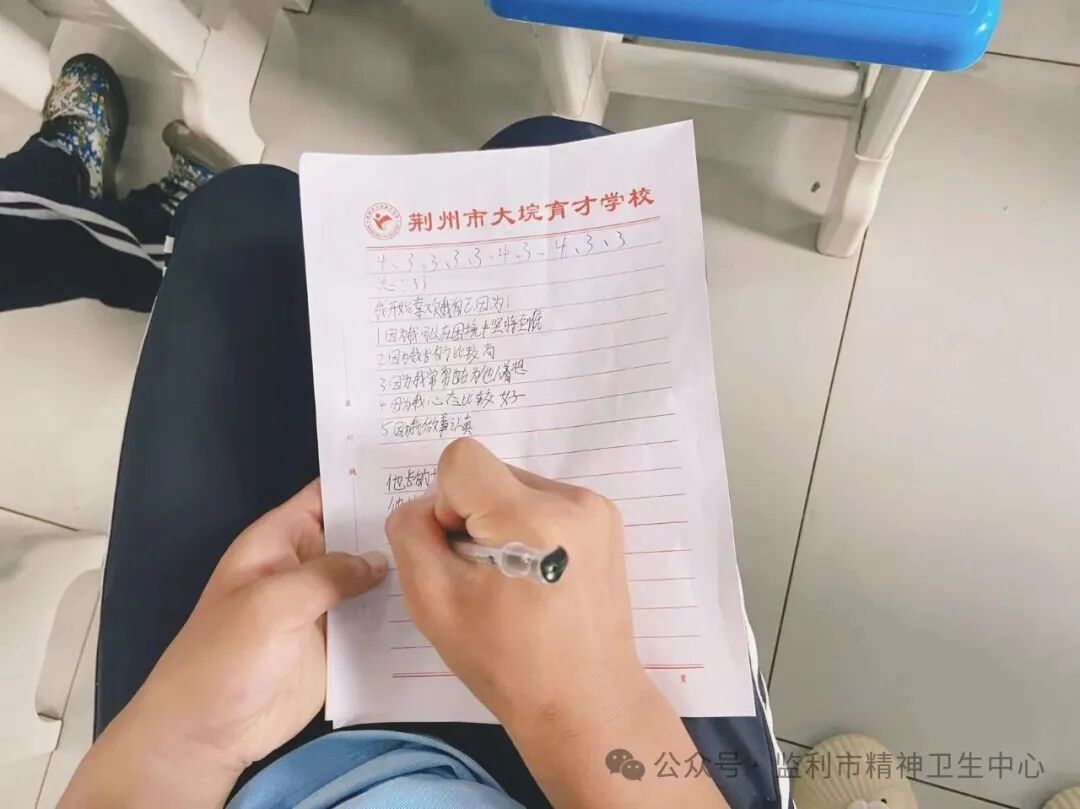 荆州市大垸育才学校
4、3、3、3、3、4、3、4、3、3
总:33
我开始喜欢我自己因为:
1因为我可以在困境中坚持到底
2因为我长的比较高
3因为我常常能为他人着想
4因为我心态比较好
5因为我做事认真
他长的
他
装
订
线
页
公众号·监利市精神卫生中心